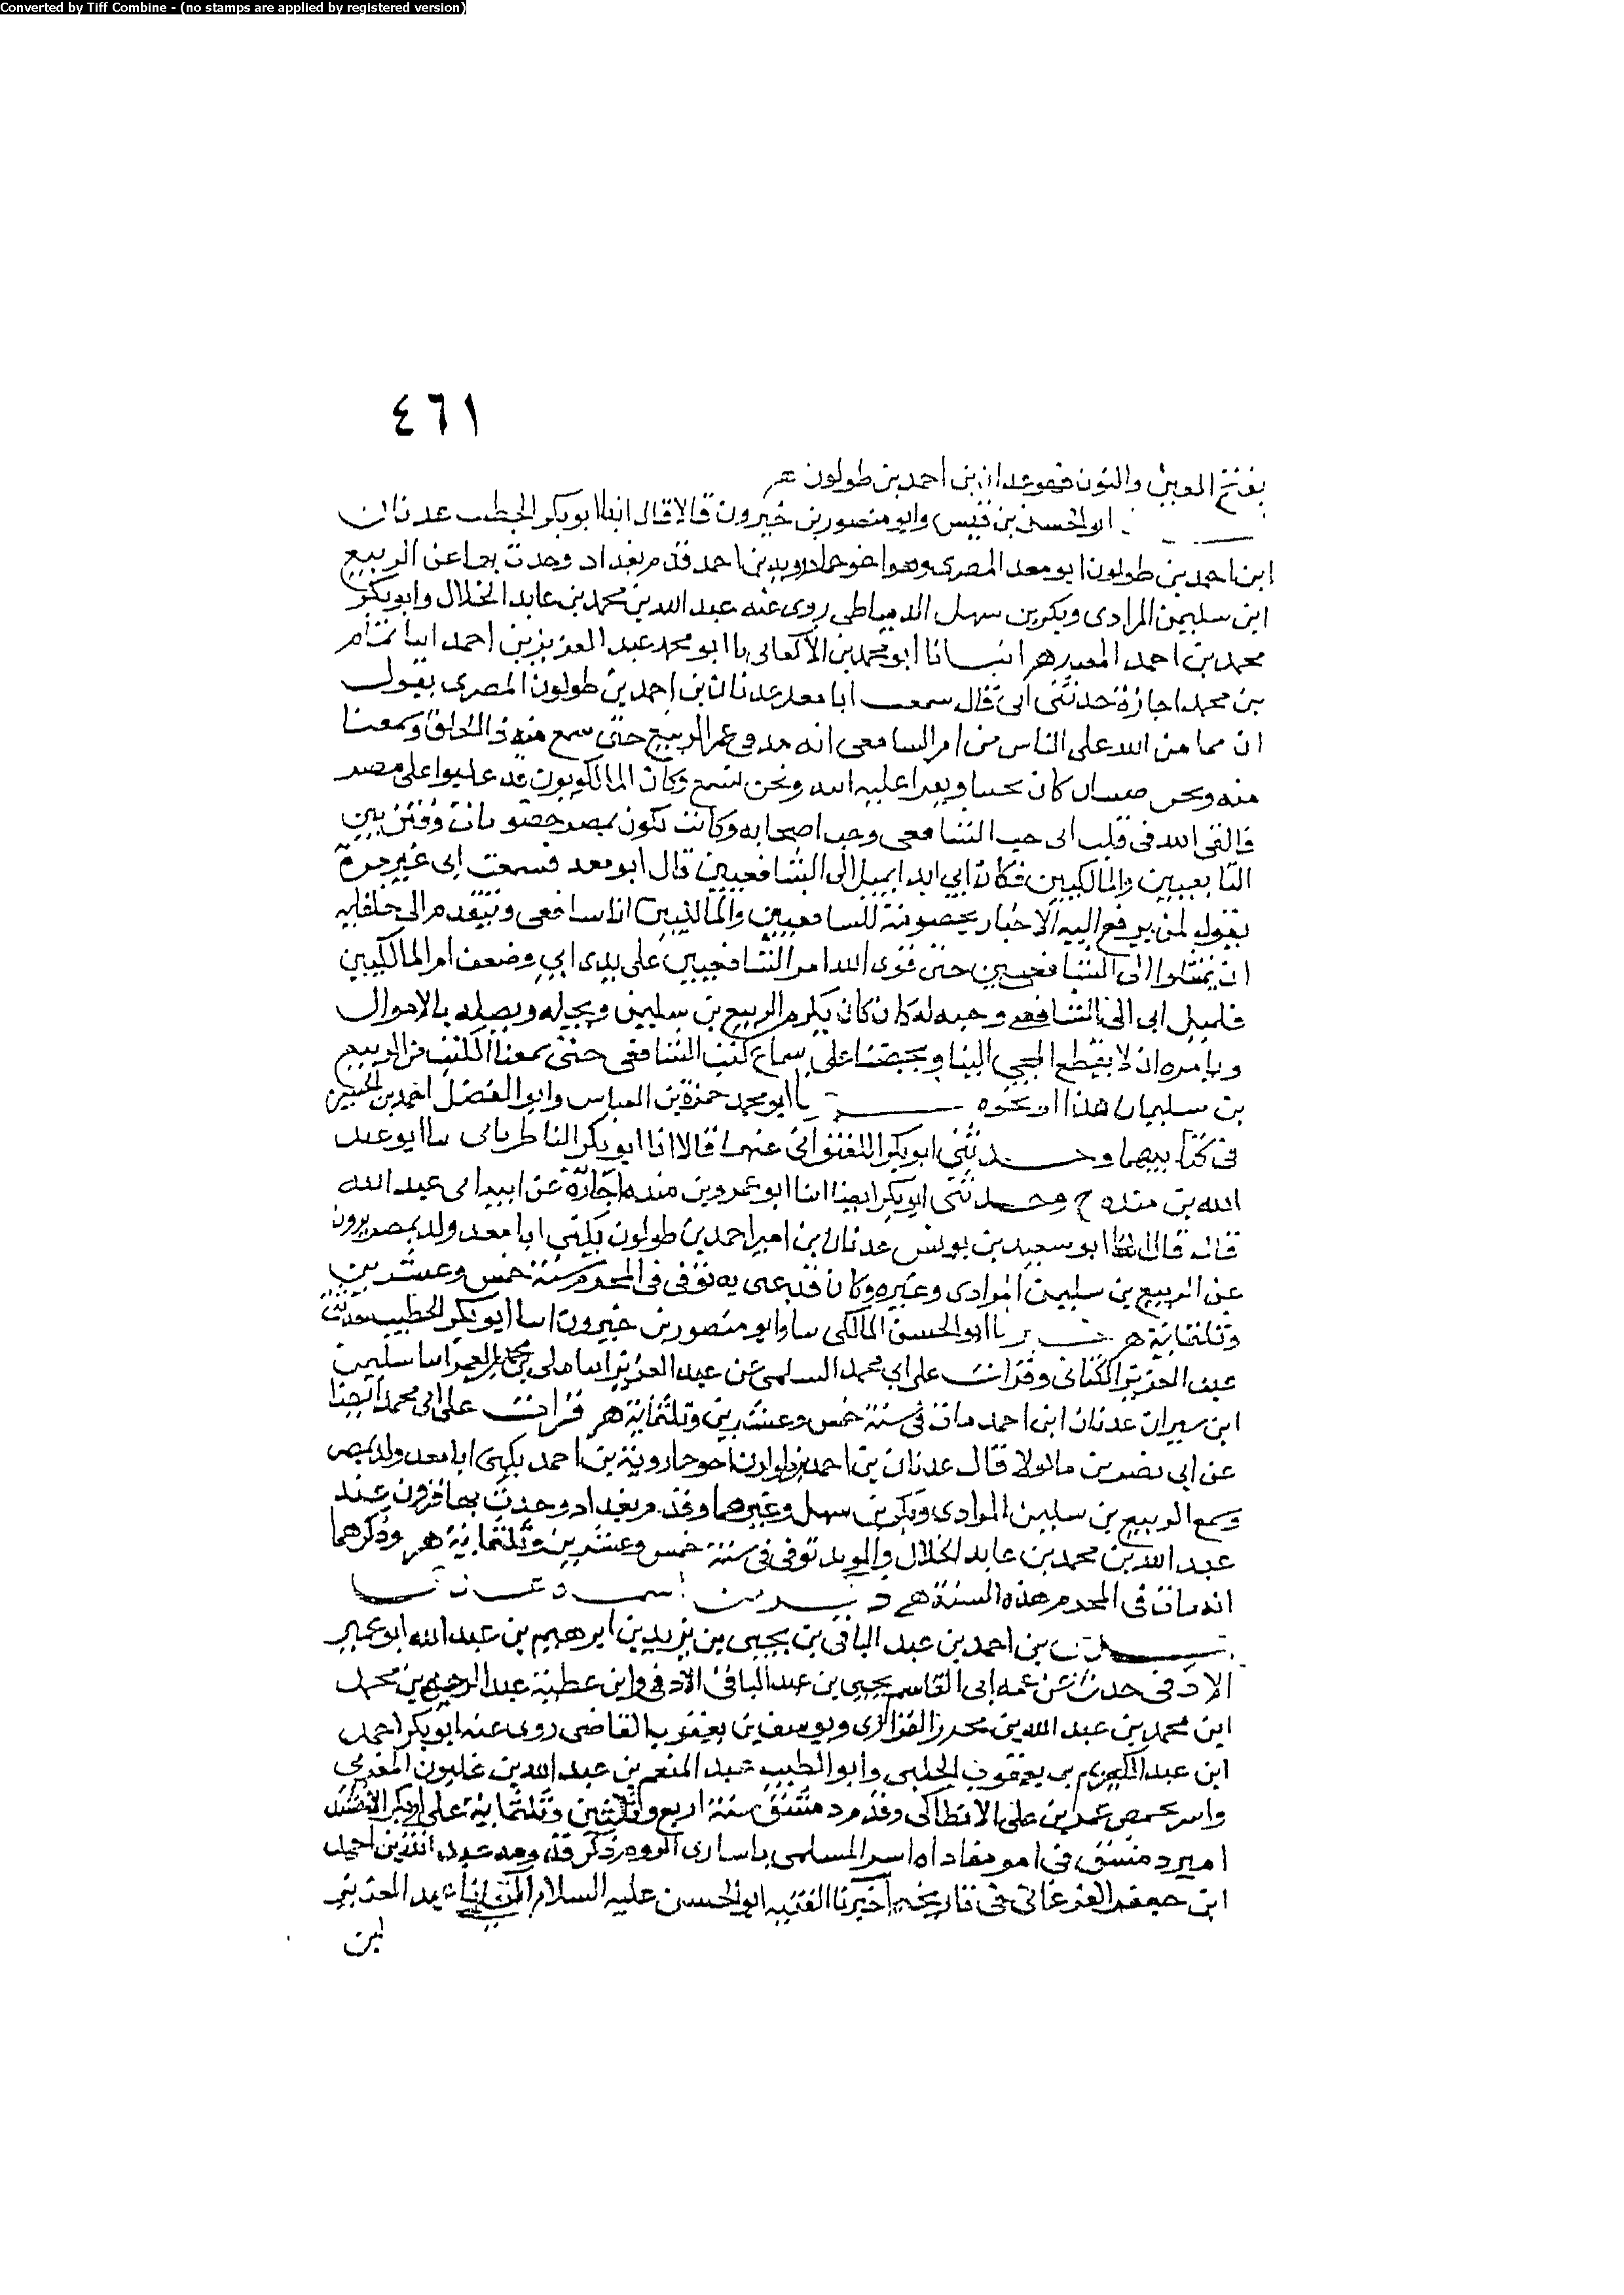 Converted by Tiff Combine - (no stamps are applied by registered version)
٤٦١
بفتح العين والنون فهو عدنان بن احمد بن طولون هـ
ابو الحسن بن قبيس وابو منصور بن خيرون قالا قال انبا ابو بكر الخطيب عدنان
ابن احمد بن طولون ابو معد المصرى وهو اخو خمارويه بن احمد قدم بغداد وحدث بها عن الربيع
ابن سليمن المرادى وبكر بن سهل الدمياطى روى عنه عبد الله بن محمد بن عابد الخلال وابو بكر
محمد بن احمد المفيد هـ انبانا ابو محمد بن الاكفانى با ابو محمد عبد العزيز بن احمد انبا تمام
بن محمد اجازة حدثنى ابى قال سمعت ابا معد عدنان بن احمد بن طولون المصرى يقول
ان مما من الله على الناس من امر الشافعى انه مد فى عمر الربيع حتى سمع منه وسمعنا
منه ونحن صبيان كان يجينا ويقرا عليه ونحن نسمع وكان المالكيون قد غلبوا على مصر
فالقى الله فى قلب ابى حب الشافعى وحب اصحابه وكانت تكون بمصر خصومات وفتن بين
الشافعيين والمالكيين فكان ابى ابدا يميل الى الشافعيين قال ابو معد فسمعت ابى غير مرة
يقول لمن يرفع اليه الاخبار بخصومة للشافعيين والمالكيين انا شافعى ويتقدم الى خلفايه
ان يميلوا الى الشافعيين حتى قوى الله امر الشافعيين على يدى ابى وضعف امر المالكيين
فلميل ابى الى الشافعى وحبه له كان يكرم الربيع بن سليمن ويجله ويصله بالاموال
ويامره ان لا يقطع المجى الينا ويحضنا على سماع كتب الشافعى حتى سمعنا الكتب من الربيع
بن سليمان هذا او نحوه با ابو محمد حمزة بن العباس وابو الفضل احمد بن الحسين
فى كتابيهما وحدثنى ابو بكر اللفتوانى عنهما قالا انا ابو بكر الباطرقانى سا ابو عبد
الله بن منده ح وحدثنى ابو بكر ايضا انبا ابو عمرو بن منده اجازة عن ابيه ابى عبد الله
قال قال لنا ابو سعيد بن يونس عدنان بن امير احمد بن طولون يكنى ابا معد ولد بمصر يروى
عن الربيع بن سليمن المرادى وغيره وكان قد عنى به توفى فى المحرم سنة خمس وعشرين
وثلثماية هـ با ابو الحسن المالكى سا وابو منصور بن خيرون اسا ابو بكر الخطيب حدثنى
عبد العزيز الكتانى وقرات على ابى محمد السلمى عن عبد العزيز اسا مكى بن محمد بن الغمر اسا سليمن
ابن عدنان ابن احمد مات فى سنة خمس وعشرين وثلثماية هـ قرات على ابى محمد ايضا
عن ابى نصر بن ماكولا قال عدنان بن احمد بن طولون اخو خمارويه بن احمد يكنى ابا معد ولد بمصر
وسمع الربيع بن سليمن المرادى وبكر بن سهل وغيرهما وقدم بغداد وحدث بها فروى عنه
عبد الله بن محمد بن عابد الخلال والمفيد توفى فى سنة خمس وعشرين وثلثماية هـ وذكرهما
انه مات فى المحرم هذه السنة هـ
بن احمد بن عبد الباقى بن يحيى بن يزيد بن ابرهيم بن عبد الله ابو عمير
الاذنى حدث عن عمه ابى القاسم يحيى بن عبد الباقى الاذنى وابن عطية عبد الرحيم بن محمد
ابن محمد بن عبد الله بن محرز الفزارى ويوسف بن يعقوب القاضى روى عنه ابو بكر احمد
ابن عبد الكريم بن يعقوب الحلبى وابو الطيب عبد المنعم بن عبد الله بن غلبون المقرى
بن على الانطاكى وقدم دمشق سنة اربع وثلثين وثلثماية على
امير دمشق فى امر مفاداة اسر المسلمين باسارى الروم ذكر قدومه عبد الله بن احمد
ابن جعفر الفرغانى فى تاريخه اخبرنا الفقيه ابو الحسن عليه السلام عبد العزيز
بن